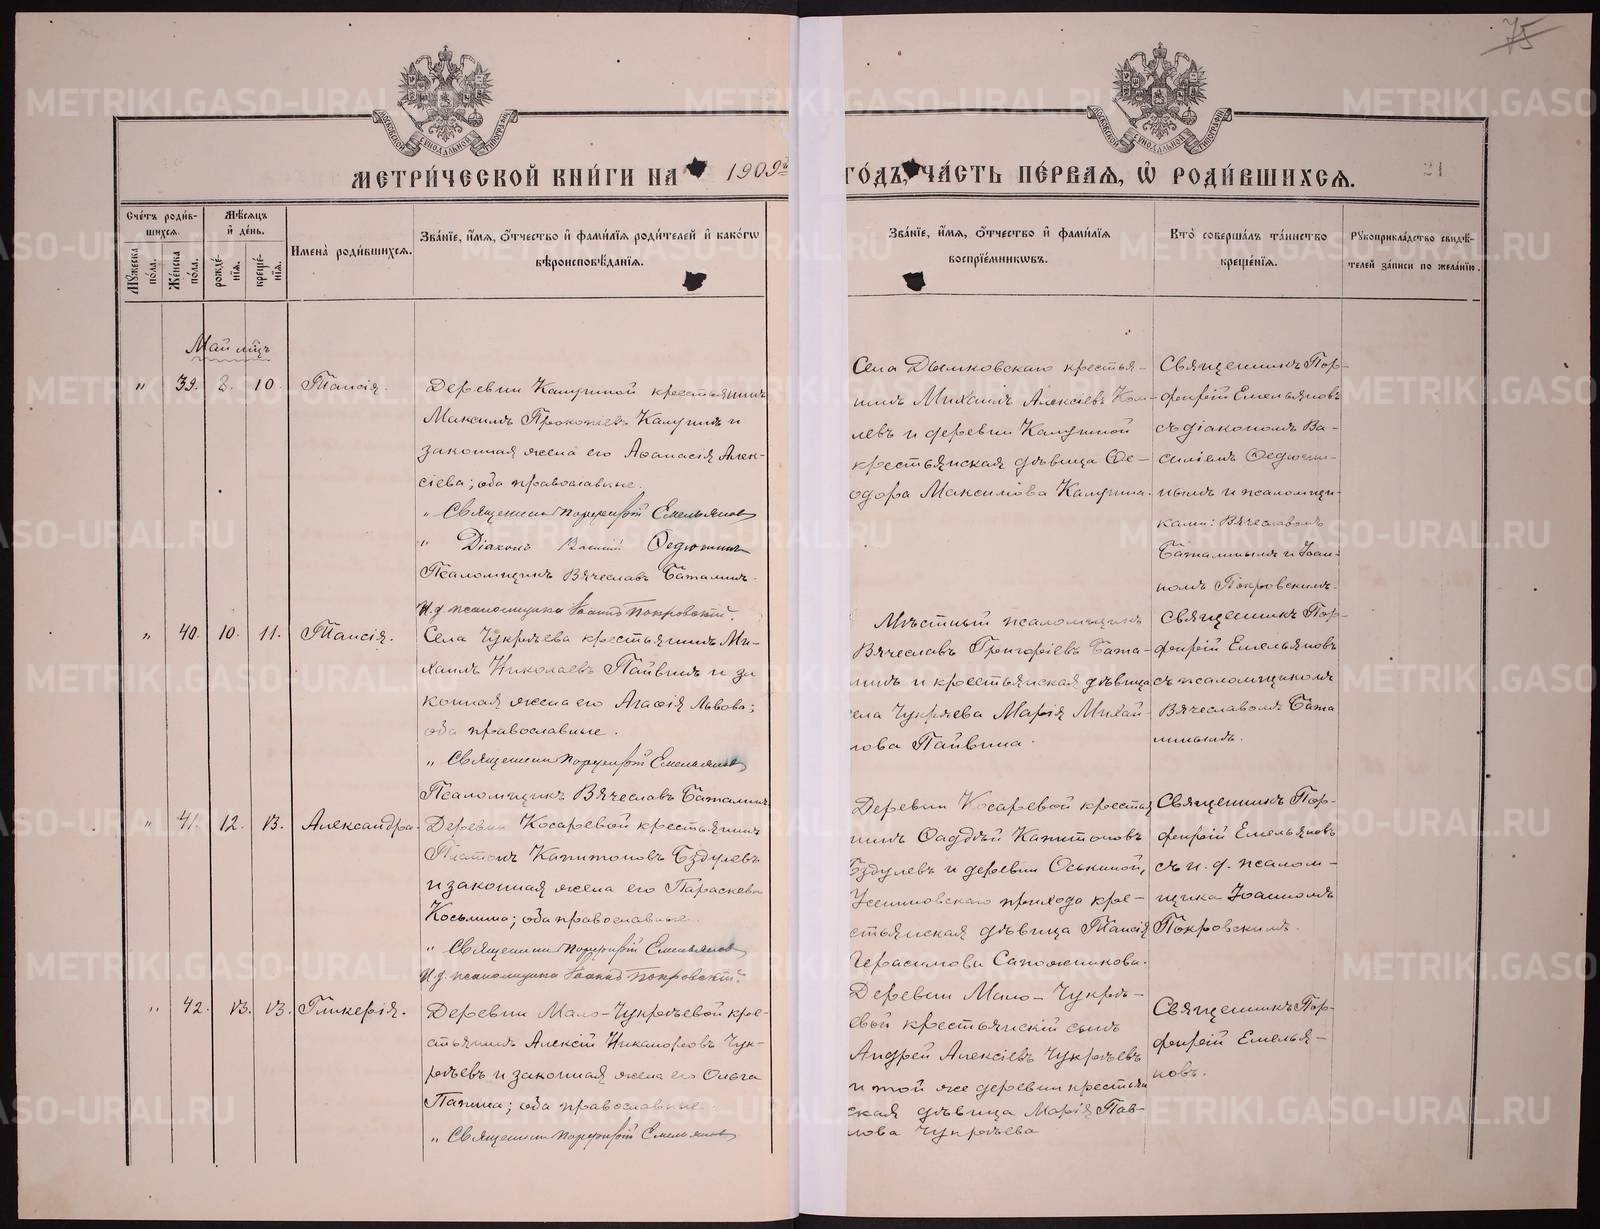 75
МОСКОВСКОЙ СѴНОДАЛЬНОЙ ТИПОГРАФІИ
МОСКОВСКОЙ СѴНОДАЛЬНОЙ ТИПОГРАФІИ
МЕТРИ́ЧЕСКОЙ КНИ́ГИ НА 1909й
ГО́ДЪ, ЧА́СТЬ ПЕ́РВАѦ, Ѡ҆ РОДИ́ВШИХСѦ.
21
Сче́тъ роди́вшихсѧ.
Мꙋжеска по́ла.
Же́нска по́ла.
Мѣ́сѧцъ и҆ де́нь.
рожде́нїѧ.
креще́нїѧ.
И҆мена̀ роди́вшихсѧ.
Зва́нїе, и҆́мѧ, ѻ҆́тчество и҆ фами́лїѧ роди́телей и҆ како́гѡ
вѣроисповѣ́данїѧ.
Зва́нїе, и҆́мѧ, ѻ҆́тчество и҆ фами́лїѧ
воспрїе́мникѡвъ.
Кто̀ соверша́лъ та́инство
креще́нїѧ.
Рꙋкоприкла́дство свидѣ́-
телей за́писи по жела́нїю.
Май мѣцъ
" 39. 2. 10. Таисія.
Деревни Калугиной крестьянинъ
Максимъ Прокопіевъ Калугинъ и
законная жена его Аѳанасія Алек-
сіева; оба православные.
" Священникъ Порфирій Емельяновъ
" Діаконъ Василій Ѳедюшинъ
Псаломщикъ Вячеславъ Баталинъ.
И.д. псаломщика Іоаннъ Покровскій.
Села Дымковскаго крестья-
нинъ Михаилъ Алексіевъ Ком-
левъ и деревни Калугиной
крестьянская дѣвица Ѳе-
одора Максимова Калугина.
Священникъ Пор-
фирій Емельяновъ
съ діакономъ Ва-
силіемъ Ѳедюши-
нымъ и псаломщи-
ками: Вячеславомъ
Баталинымъ и Іоан-
номъ Покровскимъ.
" 40. 10. 11. Таисія.
Села Чукрѣева крестьянинъ Ми-
хаилъ Николаевъ Пайвинъ и за
конная жена его Агаѳія Львова;
оба православные.
" Священникъ Порфирій Емельяновъ
Псаломщикъ Вячеславъ Баталинъ
Мѣстный псаломщикъ
Вячеславъ Григоріевъ Бата-
линъ и крестьянская дѣвица
села Чукрѣева Марія Михай-
лова Пайвина.
Священникъ Пор-
фирій Емельяновъ
съ псаломщикомъ
Вячеславомъ Бата
линымъ.
" 41. 12. 13. Александра.
Деревни Косаревой крестьянинъ
Платонъ Капитоновъ Бздулевъ
и законная жена его Параскева
Косьмина; оба православные.
" Священникъ Порфирій Емельяновъ
И.д. псаломщика Іоаннъ Покровскій.
Деревни Косаревой крестья
нинъ Ѳаддѣй Капитоновъ
Бздулевъ и деревни Оськиной,
Усениновскаго прихода кре-
стьянская дѣвица Таисія
Герасимова Сапожникова.
Священникъ Пор-
фирій Емельяновъ
съ и. д. псалом-
щика Іоанномъ
Покровскимъ.
" 42. 13. 13. Гликерія.
Деревни Мало-Чукрѣевой кре-
стьянинъ Алексій Никаноровъ Чук-
рѣевъ и законная жена его Ольга
Папина; оба православные.
" Священникъ Порфирій Емельяновъ
Деревни Мало-Чукрѣ-
евой крестьянскій сынъ
Андрей Алексіевъ Чукрѣевъ
и той же деревни крестьян
ская дѣвица Марія Пав-
лова Чукрѣева
Священникъ Пор-
фирій Емелья-
новъ.
METRIKI.GASO-URAL.RU